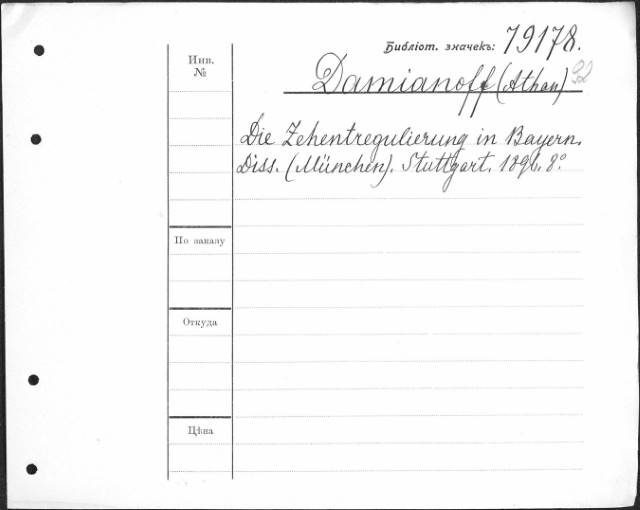 Библіот. значекъ: 79178.
Инв. №
Damianoff (Athan)
Die Zehentregulierung in Bayern.
Diss. (München). Stuttgart. 1896. 8°.
По заказу
Откуда
Цѣна